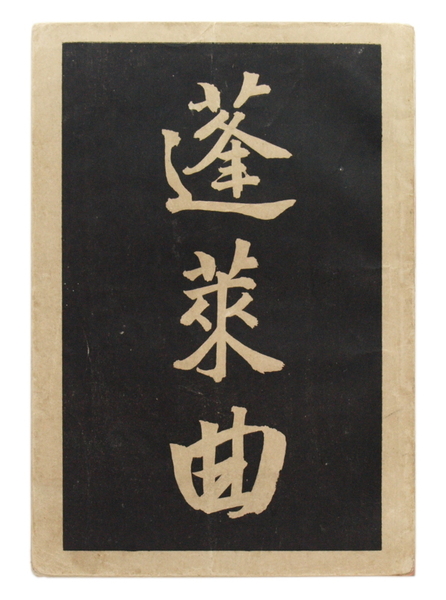 蓬萊曲